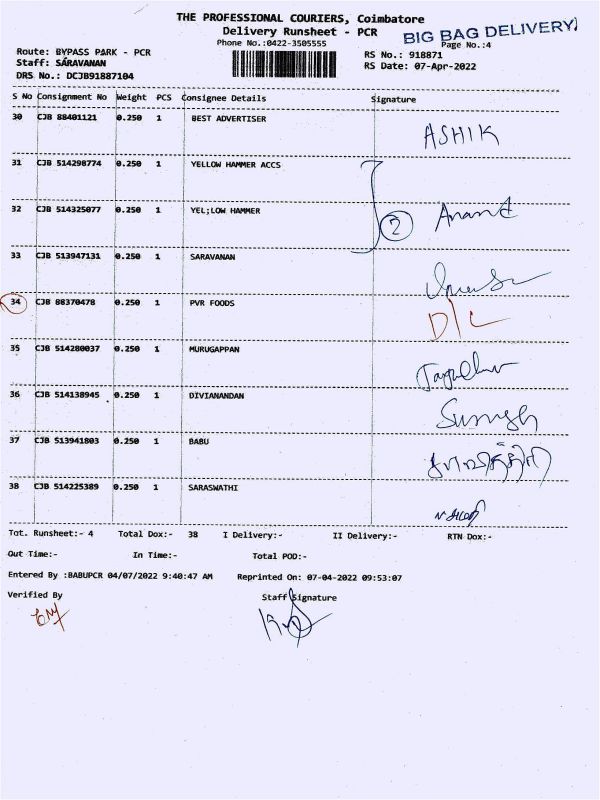 THE PROFESSIONAL COURIERS, Coimbatore
Delivery Runsheet - PCR
BIG BAG DELIVERY
Phone No.:0422-3505555
Page No.:4
Route: BYPASS PARK - PCR
RS No.: 918871
Staff: SARAVANAN
RS Date: 07-Apr-2022
DRS No.: DCJB91887104
S No Consignment No Weight PCS Consignee Details Signature
30 CJB 88401121 0.250 1 BEST ADVERTISER
ASHIK
31 CJB 514298774 0.250 1 YELLOW HAMMER ACCS
32 CJB 514325077 0.250 1 YEL;LOW HAMMER
2 Anand
33 CJB 513947131 0.250 1 SARAVANAN
34 CJB 88370478 0.250 1 PVR FOODS
D/L
35 CJB 514280037 0.250 1 MURUGAPPAN
36 CJB 514138945 0.250 1 DIVIANANDAN
37 CJB 513941803 0.250 1 BABU
38 CJB 514225389 0.250 1 SARASWATHI
Tot. Runsheet:- 4 Total Dox:- 38 I Delivery:- II Delivery:- RTN Dox:-
Out Time:- In Time:- Total POD:-
Entered By :BABUPCR 04/07/2022 9:40:47 AM Reprinted On: 07-04-2022 09:53:07
Verified By Staff Signature